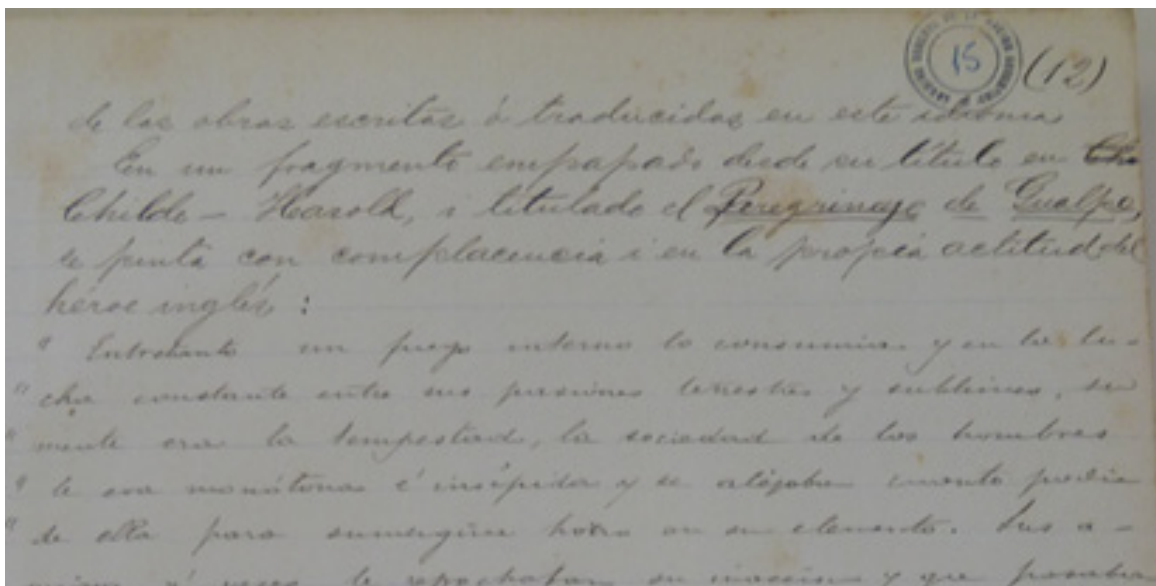 15 (12)
de las obras escritas ó traducidas en este idioma
En un fragmento empapado desde su título en
Childe-Harold, i titulado el Peregrinaje de Gualpo,
se pinta con complacencia i en la propia actitud del
héroe inglés:
" Entretanto un fuego interno lo consumia y en la lu-
" cha constante entre sus pasiones terrestres y sublimes, su
" mente era la tempestad, la sociedad de los hombres
" le era monótona é insípida y se alejaba cuanto podia
" de ella para sumergirse en su elemento. Sus a-
le reprochaban su inaccion y que